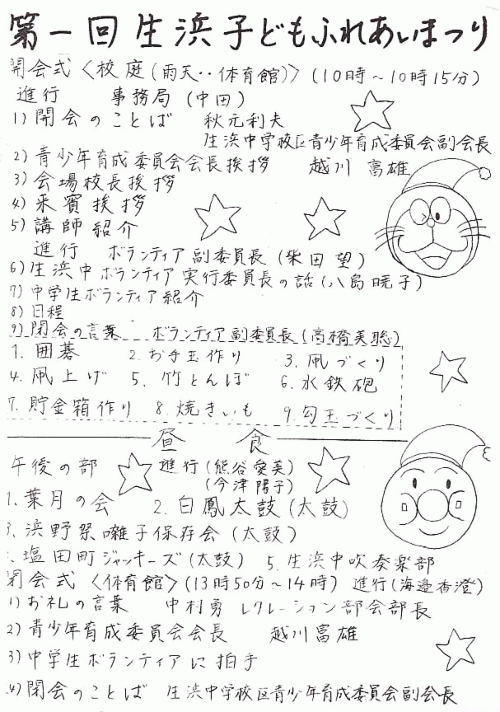 第一回生浜子どもふれあいまつり
開会式〈校庭(雨天‥体育館)〉(10時～10時15分)
進行 事務局(中田)
1)開会のことば 秋元利夫
生浜中学校区青少年育成委員会副会長
2)青少年育成委員会会長挨拶 越川 富雄
3)会場校長挨拶
4)来賓挨拶
5)講師紹介
進行 ボランティア副委員長(柴田望)
6)生浜中ボランティア実行委員長の話(八島暁子)
7)中学生ボランティア紹介
8)日程
9)閉会の言葉 ボランティア副委員長(高橋美聡)
1.囲碁 2.お手玉作り 3.凧づくり
4.凧上げ 5.竹とんぼ 6.水鉄砲
7.貯金箱作り 8.焼きいも 9.勾玉づくり
昼食
午後の部 進行(熊谷愛美)
(今津陽子)
1.葉月の会 2.白鳳太鼓(太鼓)
3.浜野祭囃子保存会(太鼓)
塩田町ジャンキーズ(太鼓) 5.生浜中吹奏楽部
閉会式〈体育館〉(13時50分～14時) 進行(海邉香澄)
1)お礼の言葉 中村勇 レクレーション部会部長
2)青少年育成委員会会長 越川富雄
3)中学生ボランティアに拍手
4)閉会のことば 生浜中学校区青少年育成委員会副会長